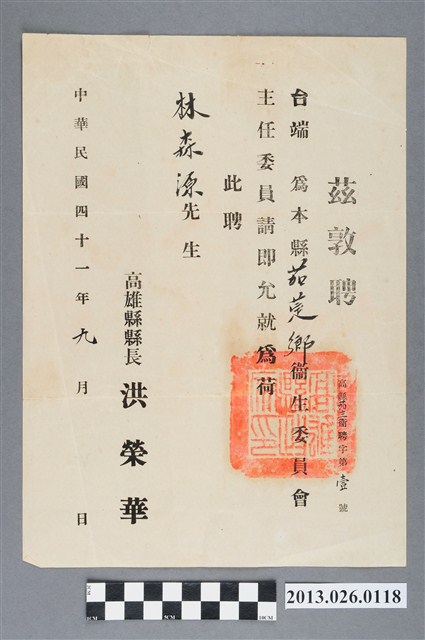 茲敦聘
高縣茄衛聘字第壹號
台端為本縣茄萣鄉衞生委員會
主任委員請即允就為荷
此聘
林森源先生
高雄縣縣長洪榮華
中華民國四十一年九月日
2013.026.0118